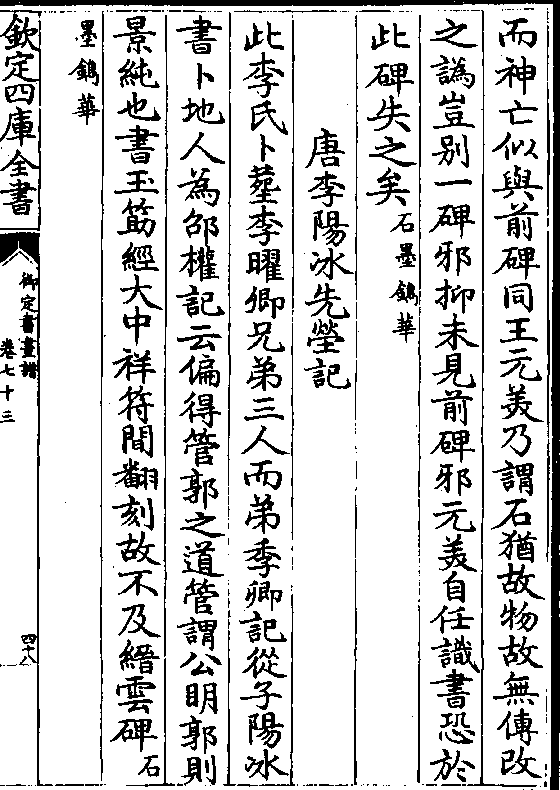 而神亡似與前碑同王元美乃謂石猶故物故無傳改
之譌豈别一碑邪抑未見前碑邪元美自任識書恐於
此碑失之矣石墨鐫華
唐李陽冰先塋記
此李氏卜塟李曜卿兄弟三人而弟季卿記從子陽冰
書卜地人為邵權記云偏得管郭之道管謂公明郭則
景純也書玉筯經大中祥符間翻刻故不及縉雲碑石
墨鐫華
欽定四庫全書
御定書畫譜
卷七十三
四十八